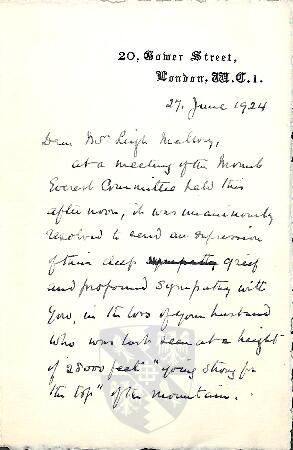 20, Gower Street,
London, W.C.1.
27, June 1924
Dear Mrs Leigh Mallory,
at a meeting of the Mount
Everest Committee held this
afternoon, it was unanimously
resolved to send an expression
of their deep sympathy, grief
and profound sympathy with
you, in the loss of your husband
who was last seen at a height
of 28000 feet "going strong for
the top" of the mountain.